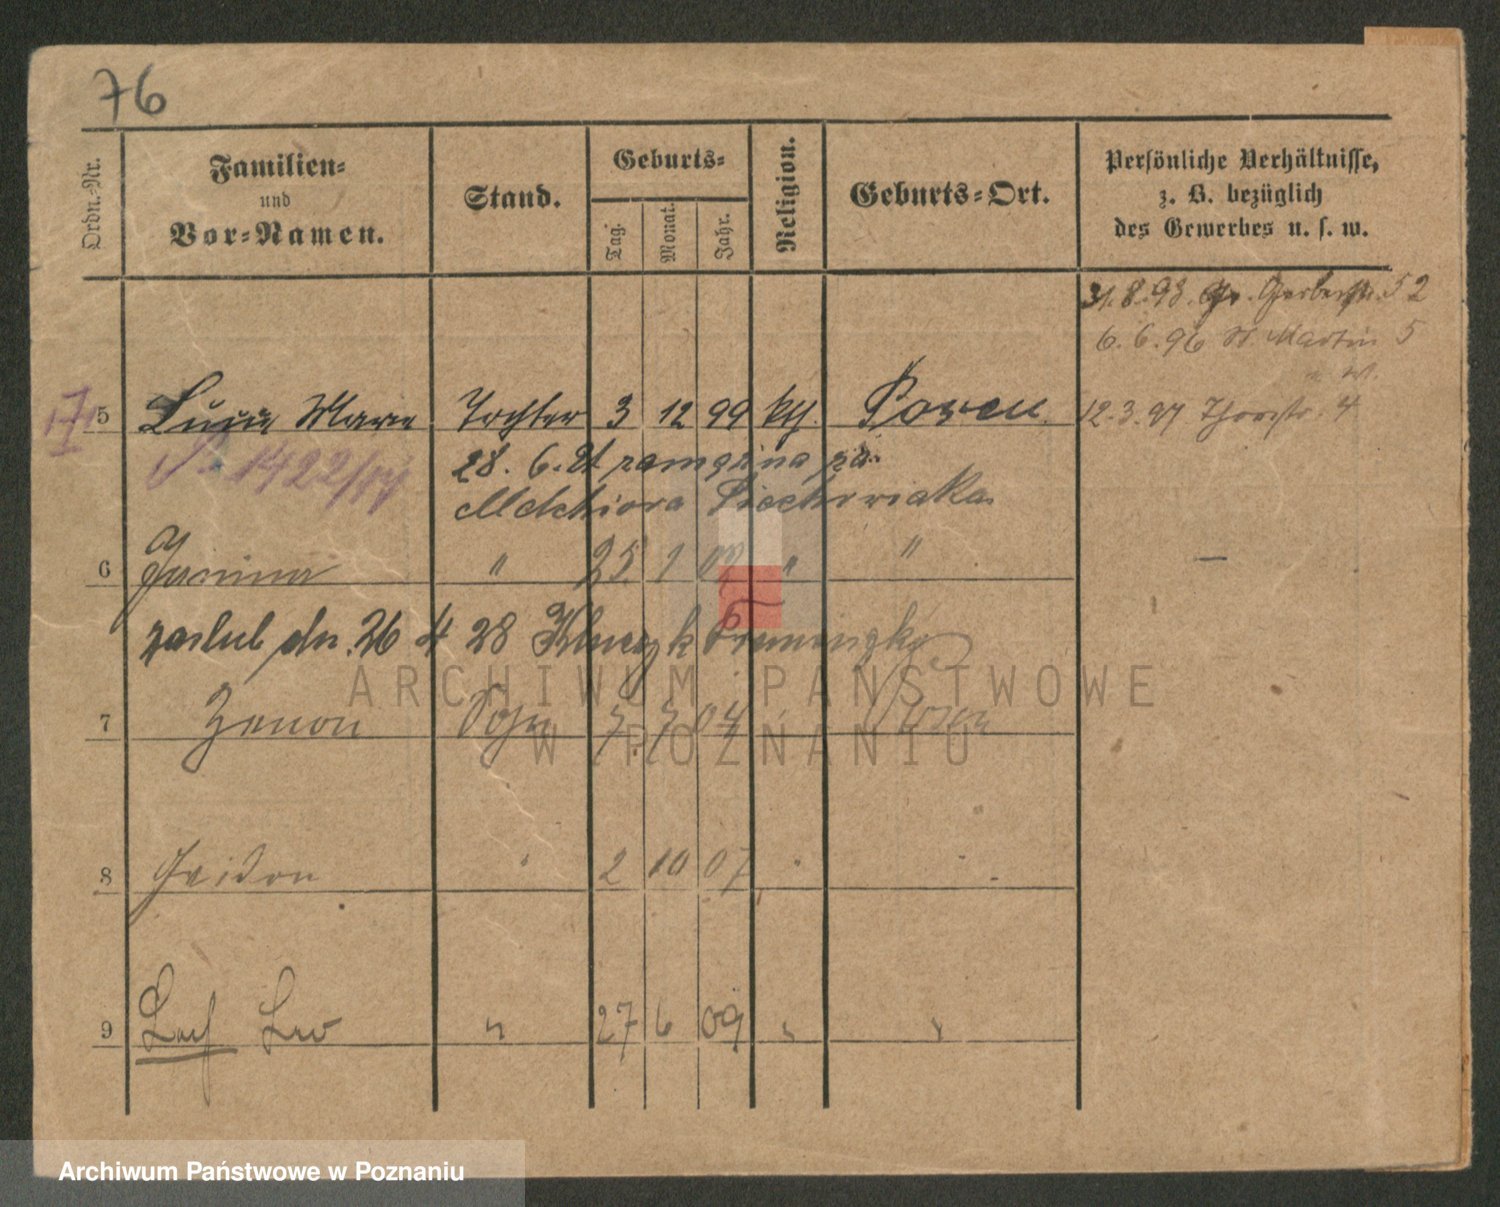 76
Ordn.-Nr.
Familien-
und
Vor-Namen.
Stand.
Geburts-
Tag.
Monat.
Jahr.
Religion.
Geburts-Ort.
Persönliche Verhältnisse,
z. B. bezüglich
des Gewerbes u. s. w.
31.8.93. Gr. Gerberstr. 52
6.6.96 St Martin 5
5 Marie Tochter 3 12 99 kth. Posen 12.3.97 4
1422/
28. 6. 21 zamężna za
Melchiora Piechowiaka
6 Janina " 25 1 02 " " —
zaslub dn. 26 4 28
7 Zenon Sohn 7 7 04 Posen
8 2 10 07
9 Lech Leo " 27 6 09 " "
ARCHIWUM PAŃSTWOWE
W POZNANIU
Archiwum Państwowe w Poznaniu